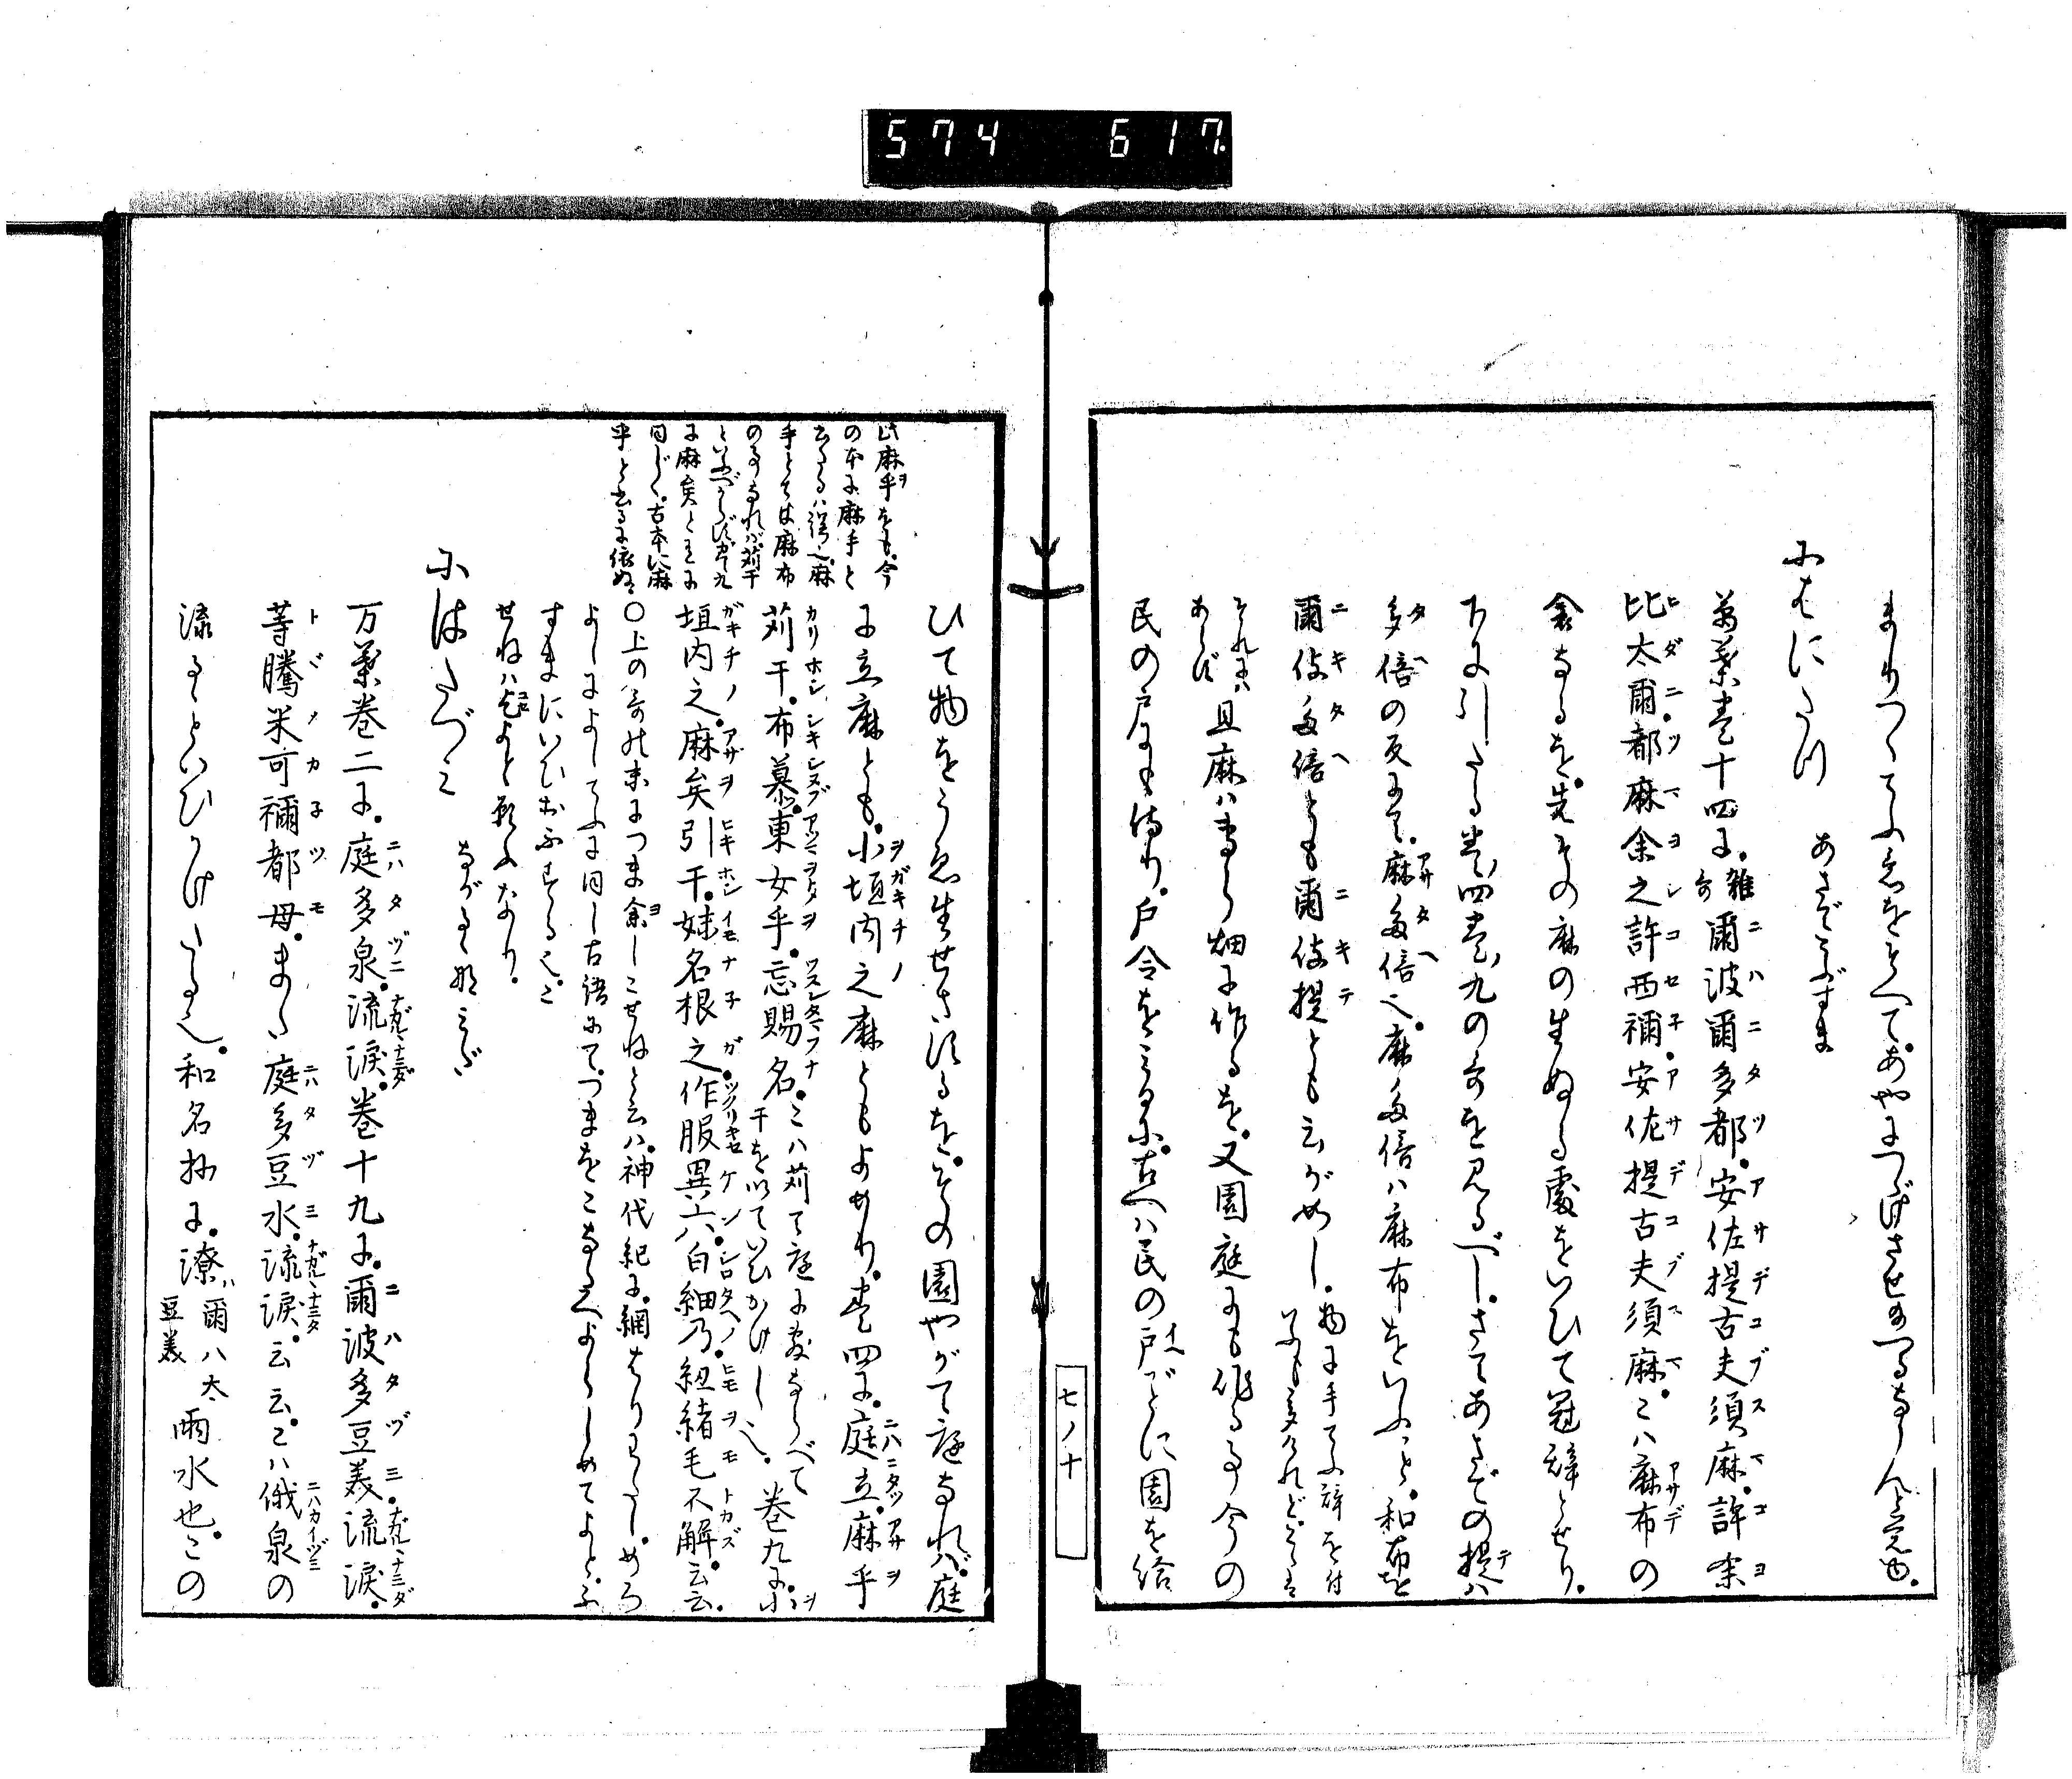 574 617
まりつくてふ意をそへてあやにつゞけさせまつるなりんと覚ゆ
にはにたつ あさでこぶすま
萬葉巻十四に雑哥爾波爾多都安佐提古夫須麻許余
比太爾都麻余之許西禰安佐提古夫須麻こハ麻布の
衾なるを先その麻の生ぬる處をいひて冠辞とせり
下に引たる巻四巻九の哥を見るべしさてあさでの提ハ
多倍の反にて麻多倍也麻多倍ハ麻布をいふこと和布を
爾伎多倍とも爾伎提とも云がごとし物に手てふ辞を付
いふも多けれどそハ
それにハあらず且麻ハ専ら畑に作るを又園庭にも作る事今の
民の戸にも侍り戸令をみるに古へハ民の戸ごとに園を給
七ノ十
ひて物をうゑ生せさするをその園やがて庭なれバ庭
に立麻とも小垣内之麻ともよめり巻四に庭立麻乎
苅干布慕東女乎忘賜名こハ苅て庭に敷ならべて
干を以ていひかけし也巻九に小
垣内之麻矣引干妹名根之作服異六白細乃紐緒毛不解云云
〇上の哥の末につま余しこせねと云ハ神代紀に網はりわたしめろ
よしによしてふに同し古語にてつまをこなたへよらしめてよとふ
すまにいひおふする也こ
せねハこせよと願ふなり
此麻乎をも今
の本に麻手と
書たるハ誤也麻
手とてハ麻布
の事なれバ苅干
といふべからず巻九
に麻矣とあるに
同じく古本に麻
乎と書るに依ぬ
にはたづみ ながるゝなみだ
万葉巻二に庭多泉流涙巻十九に爾波多豆美流涙
等騰米可禰都母また庭多豆水流涙云云こハ俄泉の
流るゝといひかけたる也和名抄に潦爾八太豆美雨水也この